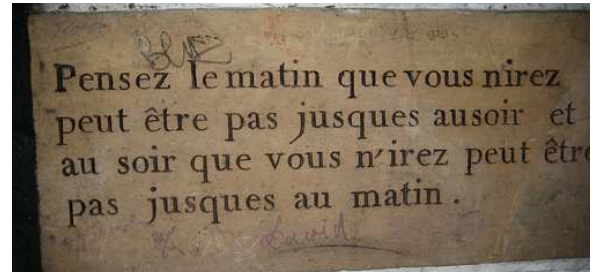 Pensez le matin que vous nirez
peut être pas jusques ausoir et
au soir que vous n'irez peut être
pas jusques au matin .
David